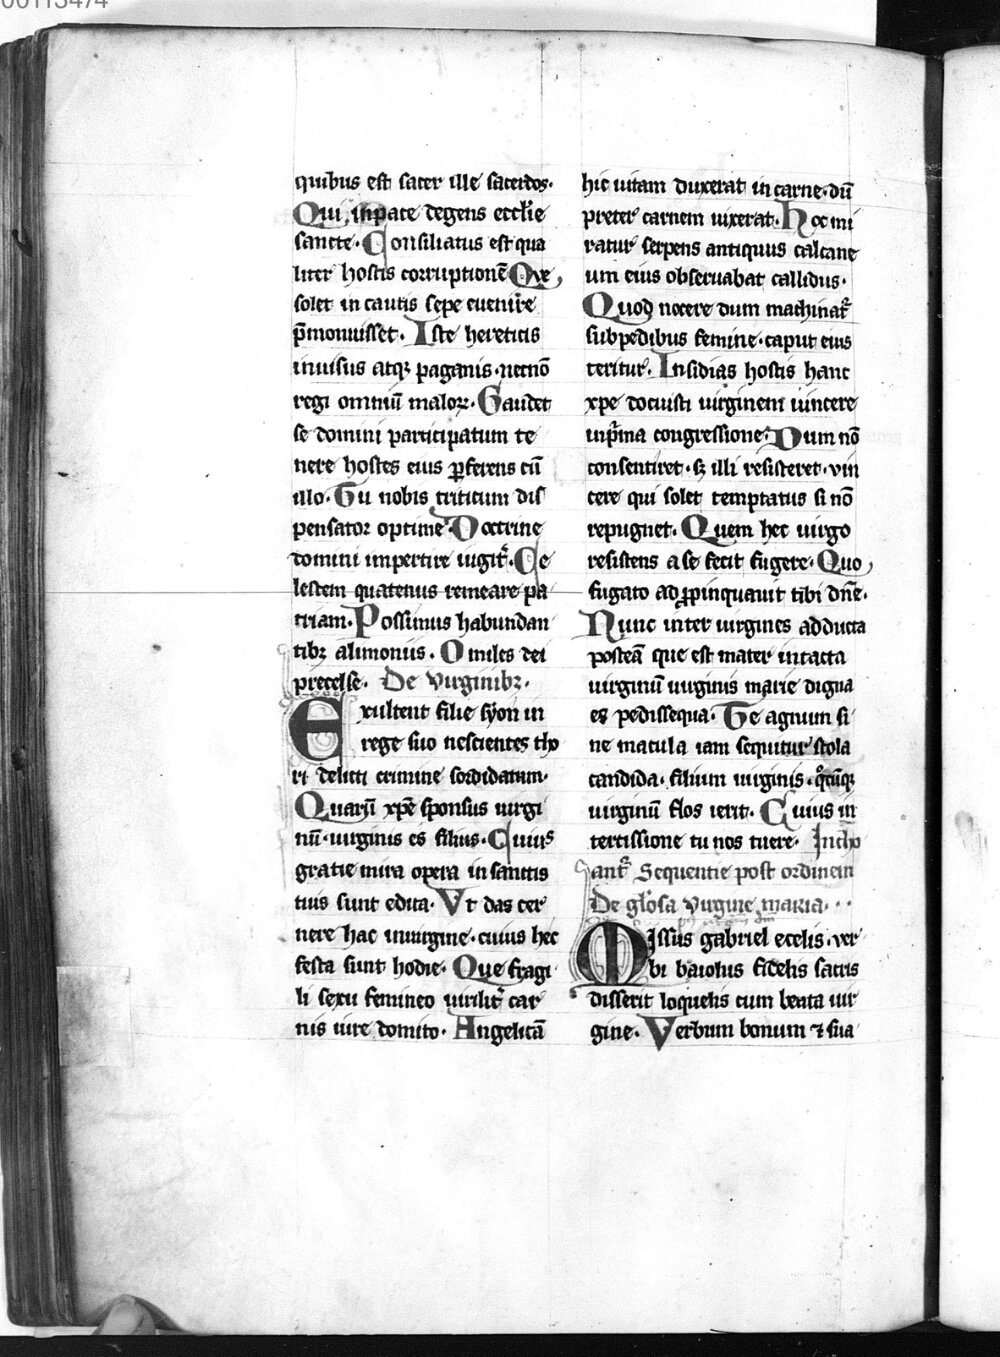 00113474
quibus est sacer ille sacerdos·
Qui, inpace degens eccl'ie
sancte· Consiliatus est qua
liter hostis corruptionē Que
solet in cautis sepe euenire
p̄monuisset· Iste hereticis
inuisus atqꝫ paganis·necnō
regi omniū maloꝝ· Gaudet
se domini participatum te
nere hostes eius ꝑferens cū
illo· Tu nobis triticum dis
pensator optime· Doctrine
domini impertire iugit᷑· Ce
lestem quatenus remeare pa
triam· Possimus habundan
tibꝫ alimoniis· O miles dei
precelse· De virginibꝫ·
Exultent filie syon in
rege suo nescientes tho
ri delicti crimine sordidatum·
Quarū xp̄e sponsus uirgi
nū·uirginis es filius· Cuius
gratie mira opera in sanctis
tuis sunt edita· Vt das cer
nere hac inuirgine·cuius hec
festa sunt hodie· Que fragi
li sexu femineo uirilit᷑ car
nis uire domito· Angelicā
hic uitam duxerat in carne·dū
preter carnem uixerat· Hoc mi
ratur serpens antiquus calcane
um eius obseruabat callidus·
Quod nocere dum machinat᷑
subpedibus femine·caput eius
teritur· Insidias hostis hanc
xpe docuisti uirginem uincere
inp̄ma congressione· Dum nō
consentiret·sꝫ illi resisteret·vin
cere qui solet temptatus si nō
repugnet· Quem hec uirgo
resistens a se fecit fugere· Quo
fugato ad ꝓpinquauit tibi dn̄e·
Nunc inter uirgines adducta
posteā que est mater intacta
uirginū uirginis marie digna
es pedissequa· Te agnum si
ne macula iam sequitur stola
candida· filium uirginis·qͦcūqꝫ
uirginū flos ierit· Cuius in
tercissione tu nos tuere· Incho
ant᷑ Sequentie post ordinem
De gl'osa virgine maria· · ·
Missus gabriel ecelis·ver
bi baiolus fidelis sacris
disserit loquelis cum beata uir
gine· Verbum bonum ⁊ sua